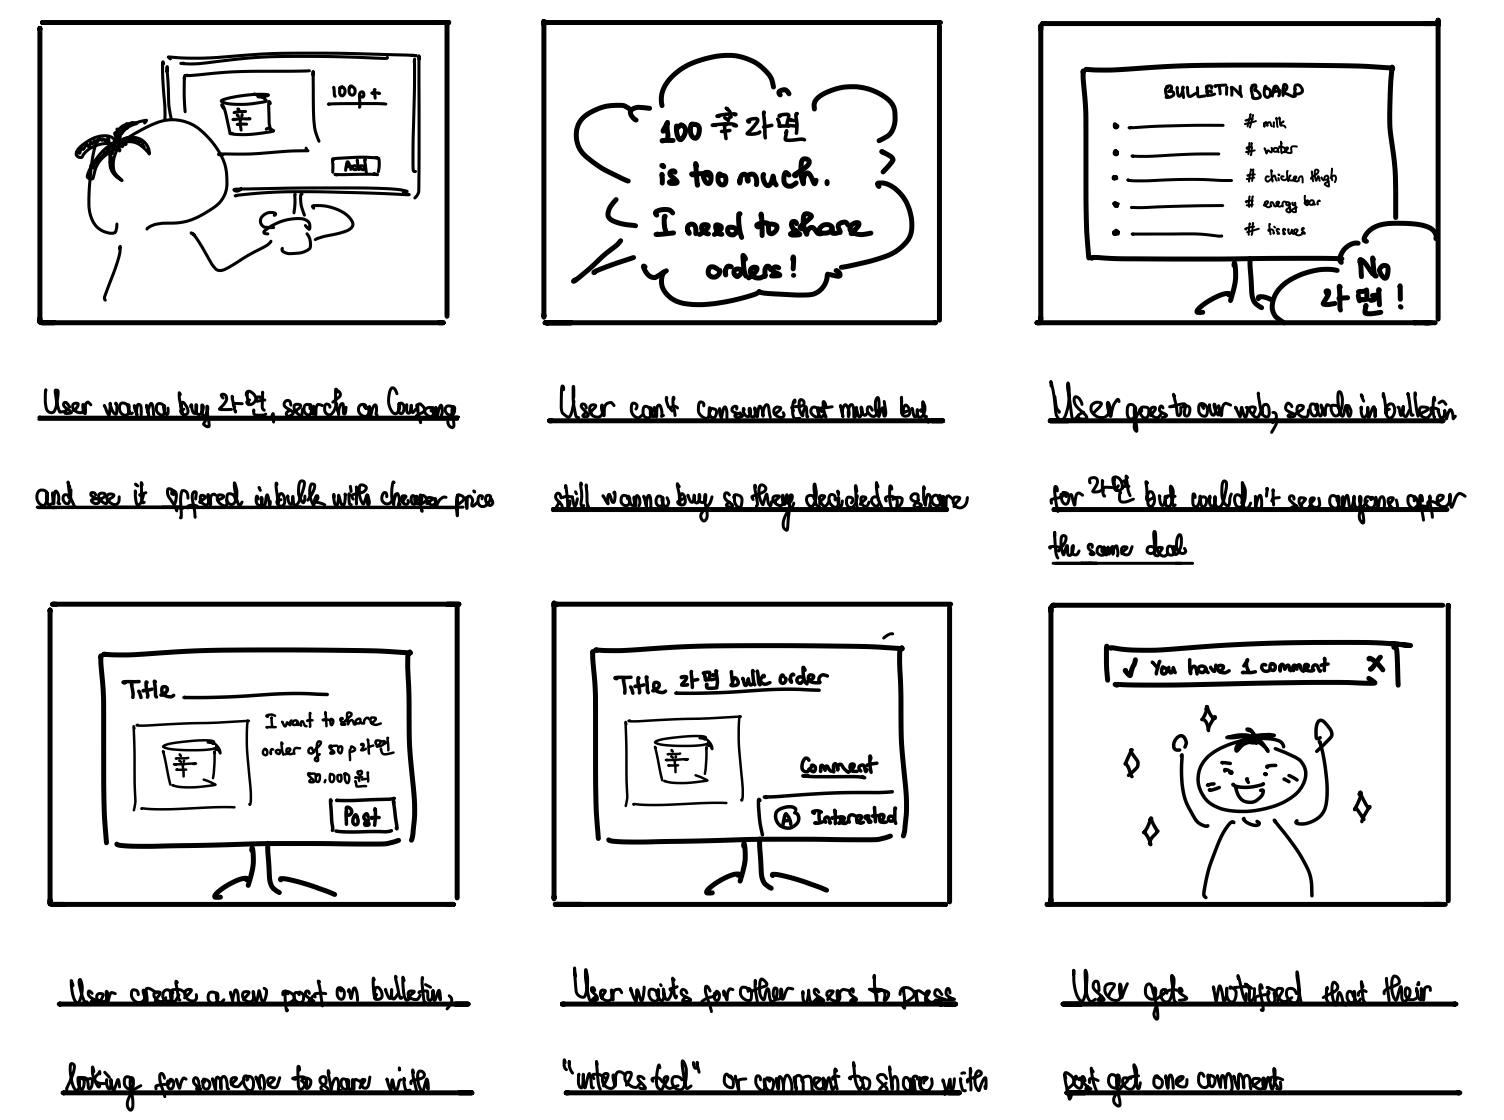 100p +
Add
User wanna buy 라면, search on Coupang
and see it offered in bulk with cheaper price
100 푸라면
is too much.
I need to share
orders!
User can't consume that much but
still wanna buy so they decided to share
BULLETIN BOARD
# milk
# water
# chicken thigh
# energy bar
# tissues
No
라면!
User goes to our web, search in bulletin
for 라면 but couldn't see anyone offer
the same deal
Title
I want to share
order of 50 p 라면
50.000 원
Post
User create a new post on bulletin,
looking for someone to share with
Title 라면 bulk order
Comment
A Interested
User waits for other users to press
"interested" or comment to share with
✓ You have 1 comment X
User gets notified that their
post get one comment